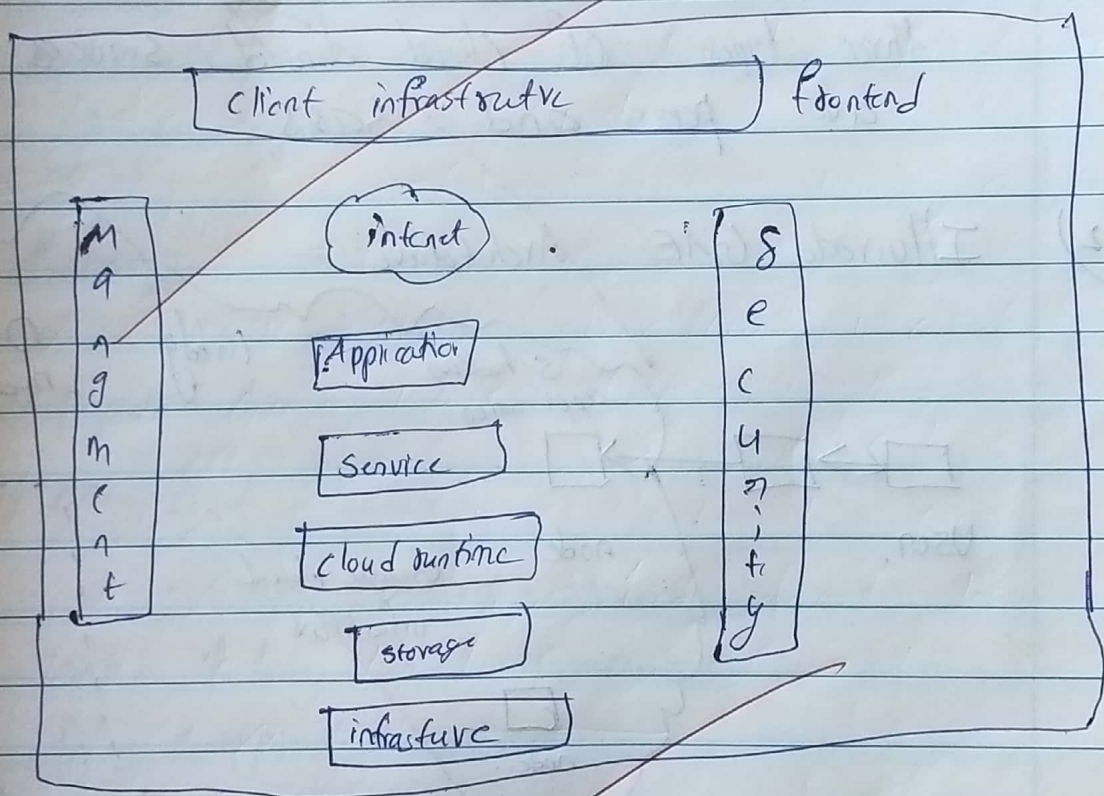 client infrastrutve frontend
Managment
intenet
Application
Service
cloud runtime
storage
infrasture
Security